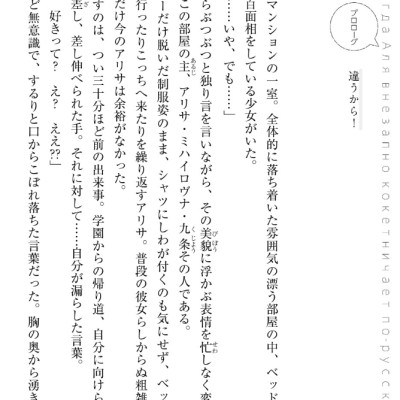 гда Аля внезапно кокетничает по-русск
プロローグ
違うから！
マンションの一室。全体的に落ち着いた雰囲気の漂う部屋の中、ベッド
百面相をしている少女がいた。
……いや、でも……」
らぶつぶつと独り言を言いながら、その美貌に浮かぶ表情を忙しなく変
この部屋の主、アリサ・ミハイロヴナ・九条その人である。
ーだけ脱いだ制服姿のまま、シャツにしわが付くのも気にせず、ベッ
行ったりこっちへ来たりを繰り返すアリサ。普段の彼女らしからぬ粗雑
だけ今のアリサは余裕がなかった。
すのは、つい三十分ほど前の出来事。学園からの帰り道、自分に向けら
差し、差し伸べられた手。それに対して……自分が漏らした言葉。
好きって？　え？　ええ??」
ど無意識で、するりと口からこぼれ落ちた言葉だった。胸の奥から湧き